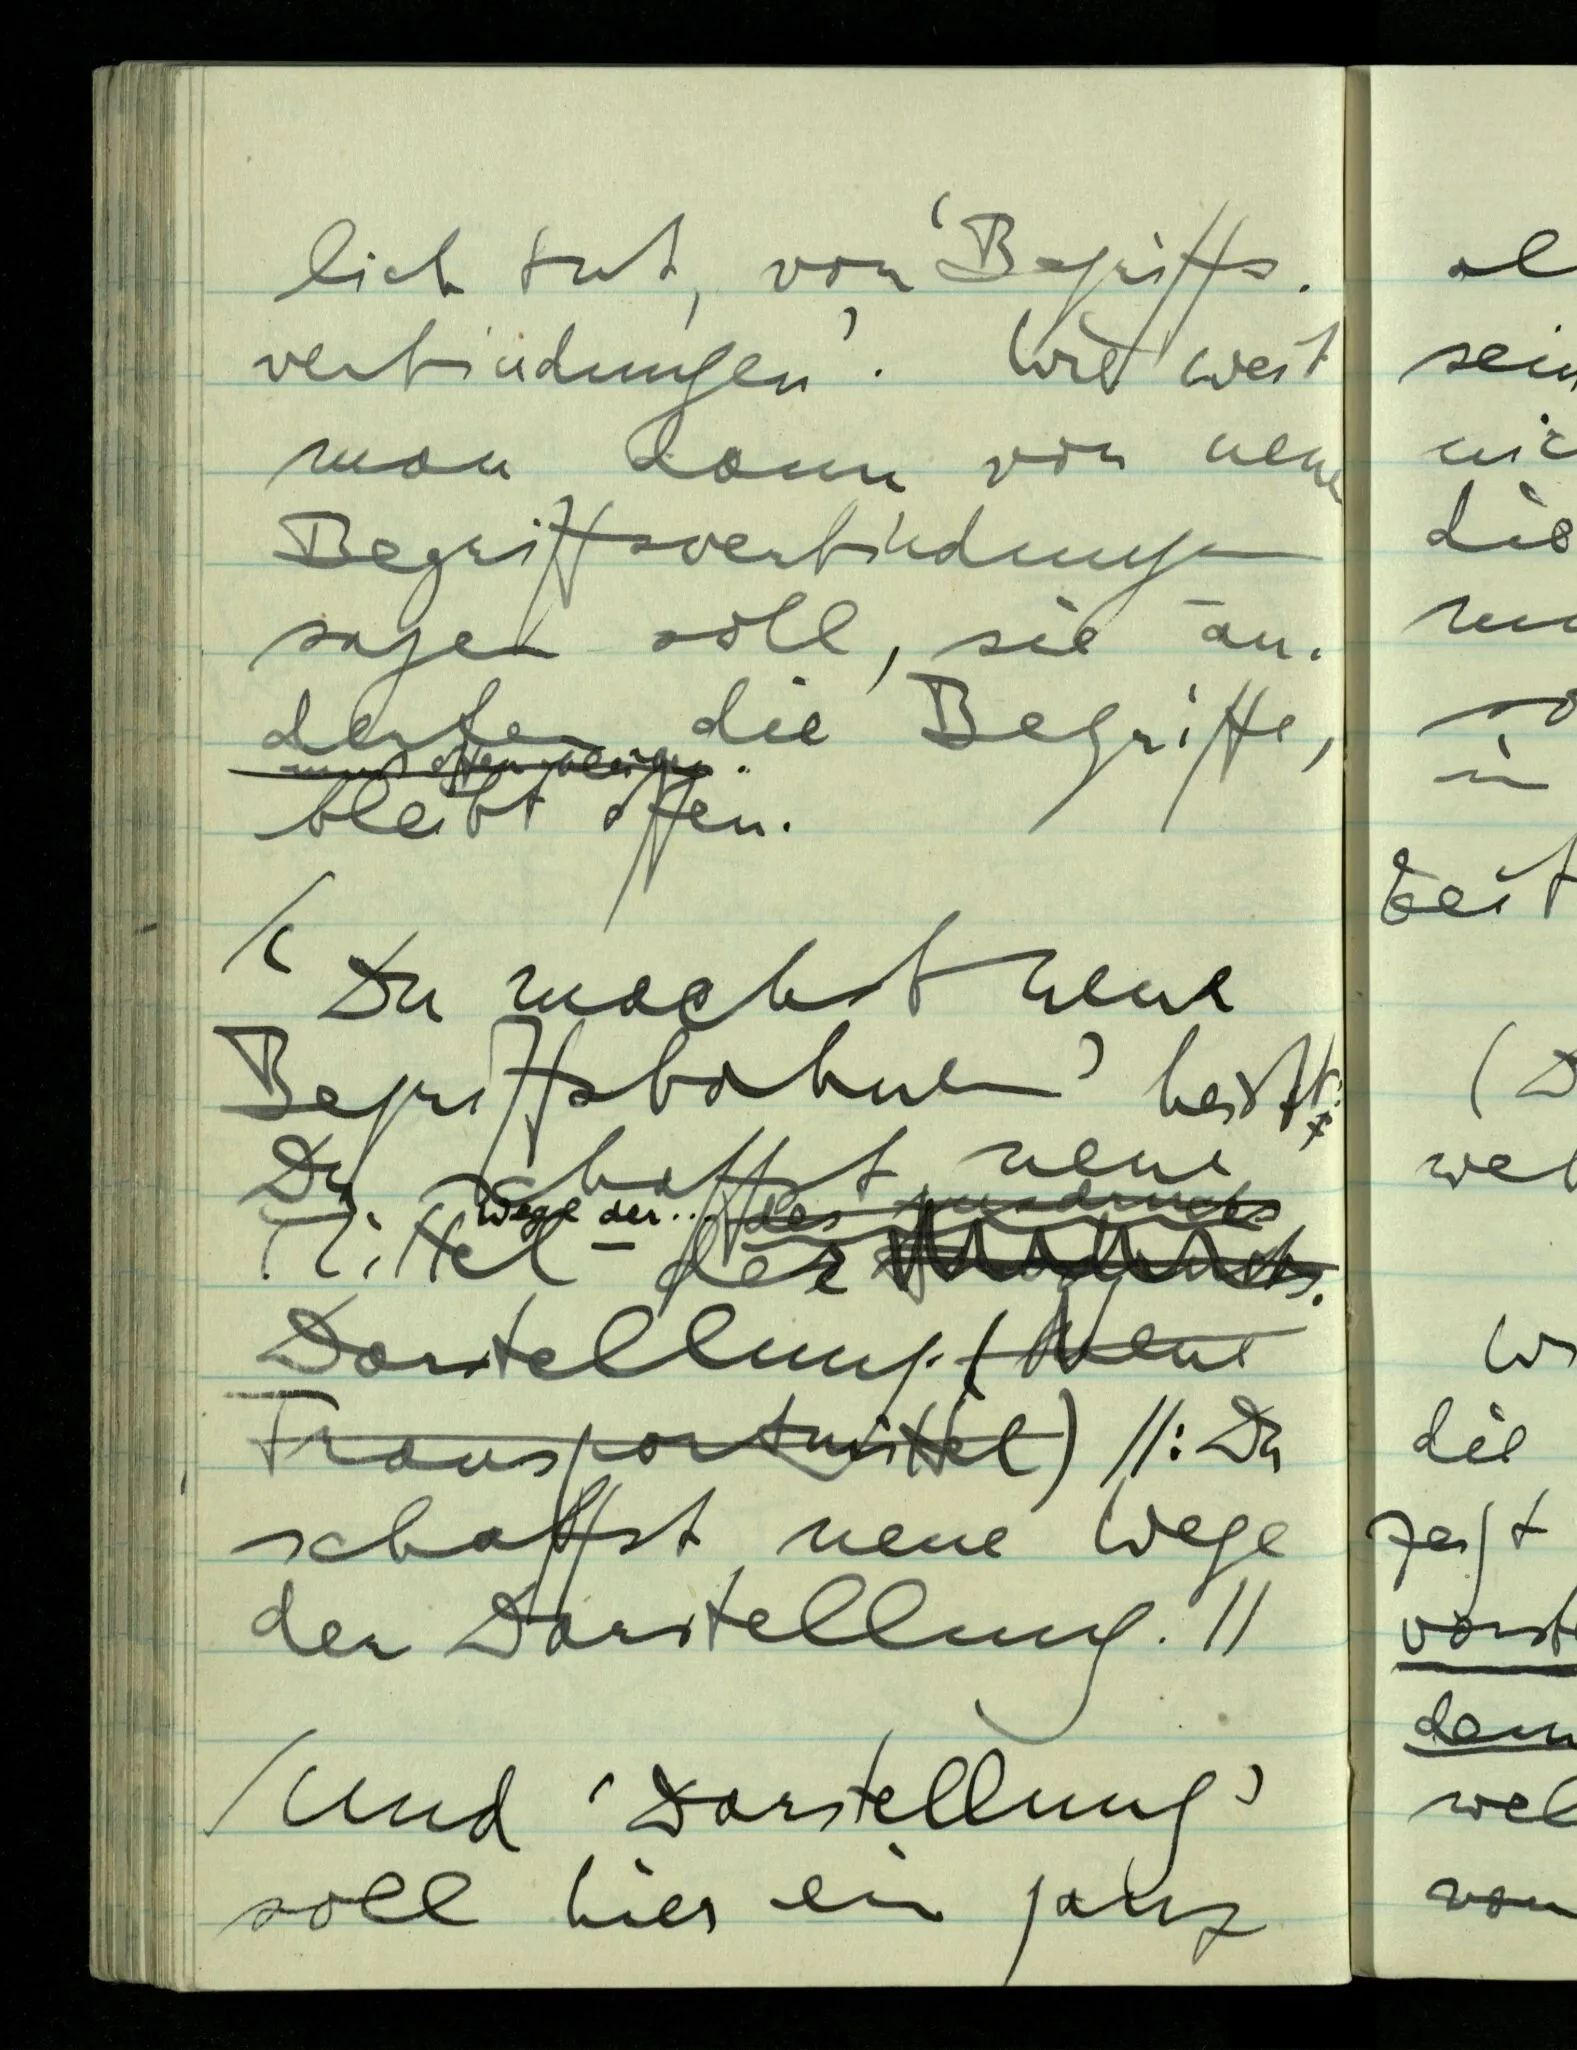 lich tut, von ‘Begriffs.
verbindungen’. Wie weit
man dann von neuen
Begriffsverbindungen
sagen soll, sie än.
derten die Begriffe,
bleibt offen.
/ ‘Du machst neue
Begriffsbahnen’ heißt:
Du schaffst neue
Wege der.. des Ausdrucks
Mittel – der
Darstellung. (Neue
Transportmittel) //: Du
schaffst neue Wege
der Darstellung. //
/ Und ‘Darstellung’
soll hier ein ganz
al
sein
nic
die
in
Zeit
(D
wel
die
zeigt